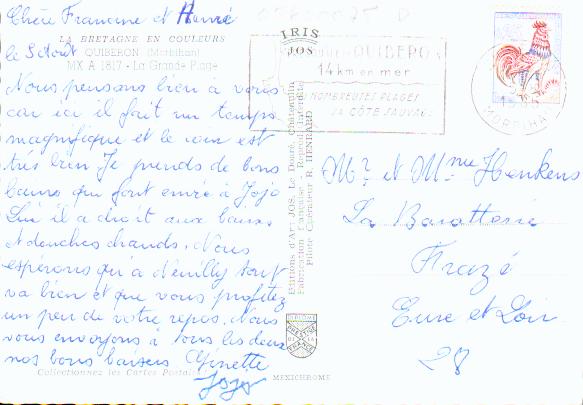 Chère Francine et Henri
LA BRETAGNE EN COULEURS
le 5 Aout QUIBERON (Morbihan)
MX A 1817 - La Grande Plage
Nous pensons bien à vous
car ici il fait un temps
magnifique et le
très bien Je prends de bons
bains qui font envie à Jojo
Lui il a droit aux bains
et douches chauds. Nous
espérons qu'à Neuilly tout
va bien et que vous profitez
un peu de votre repos. Nous
vous envoyons à tous les deux
nos bons baisers Ginette
Jojo
Collectionnez les Cartes Postales
MEXICHROME
IRIS
JOS
QUIBERON
14 km en mer
NOMBREUSES PLAGES
LA CÔTE SAUVAGE
MORBIHAN
Editions d'Art JOS. Le Doaré, Châteaulin
Fabrication Française - Reprod. Interdite
Pilote Opérateur R. HENRARD
Mr et Mme Hankens
La
Frazé
Eure et Loir
28